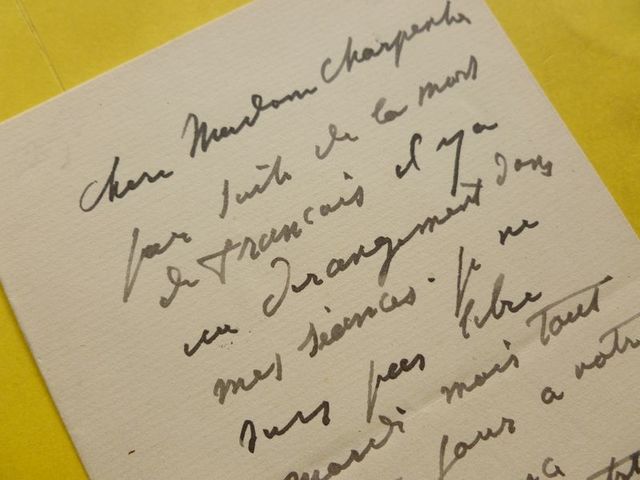 Chere Madame Charpentier
par suite de la mort
de francais il y a
un derangement dans
mes séances. je ne
suis pas libre
mardi mais tout
jour a votre